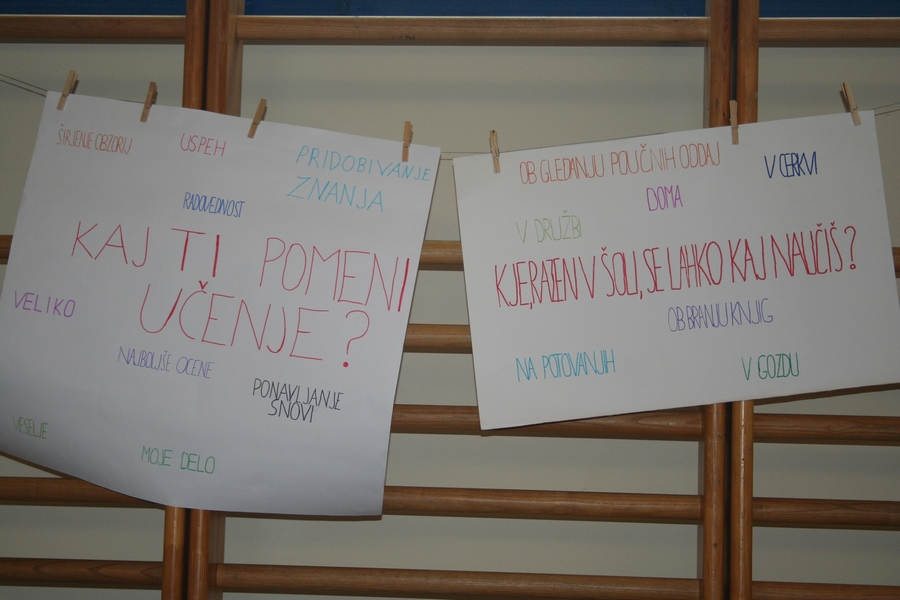 ŠIRJENJE OBZORIJ
USPEH
PRIDOBIVANJE
ZNANJA
RADOVEDNOST
KAJ TI POMENI
UČENJE?
VELIKO
NAJBOLJŠE OCENE
PONAVLJANJE
SNOVI
VESELJE
MOJE DELO
OB GLEDANJU POUČNIH ODDAJ
V CERKVI
DOMA
V DRUŽBI
KJE, RAZEN V ŠOLI, SE LAHKO KAJ NAUČIŠ?
OB BRANJU KNJIG
NA POTOVANJIH
V GOZDU